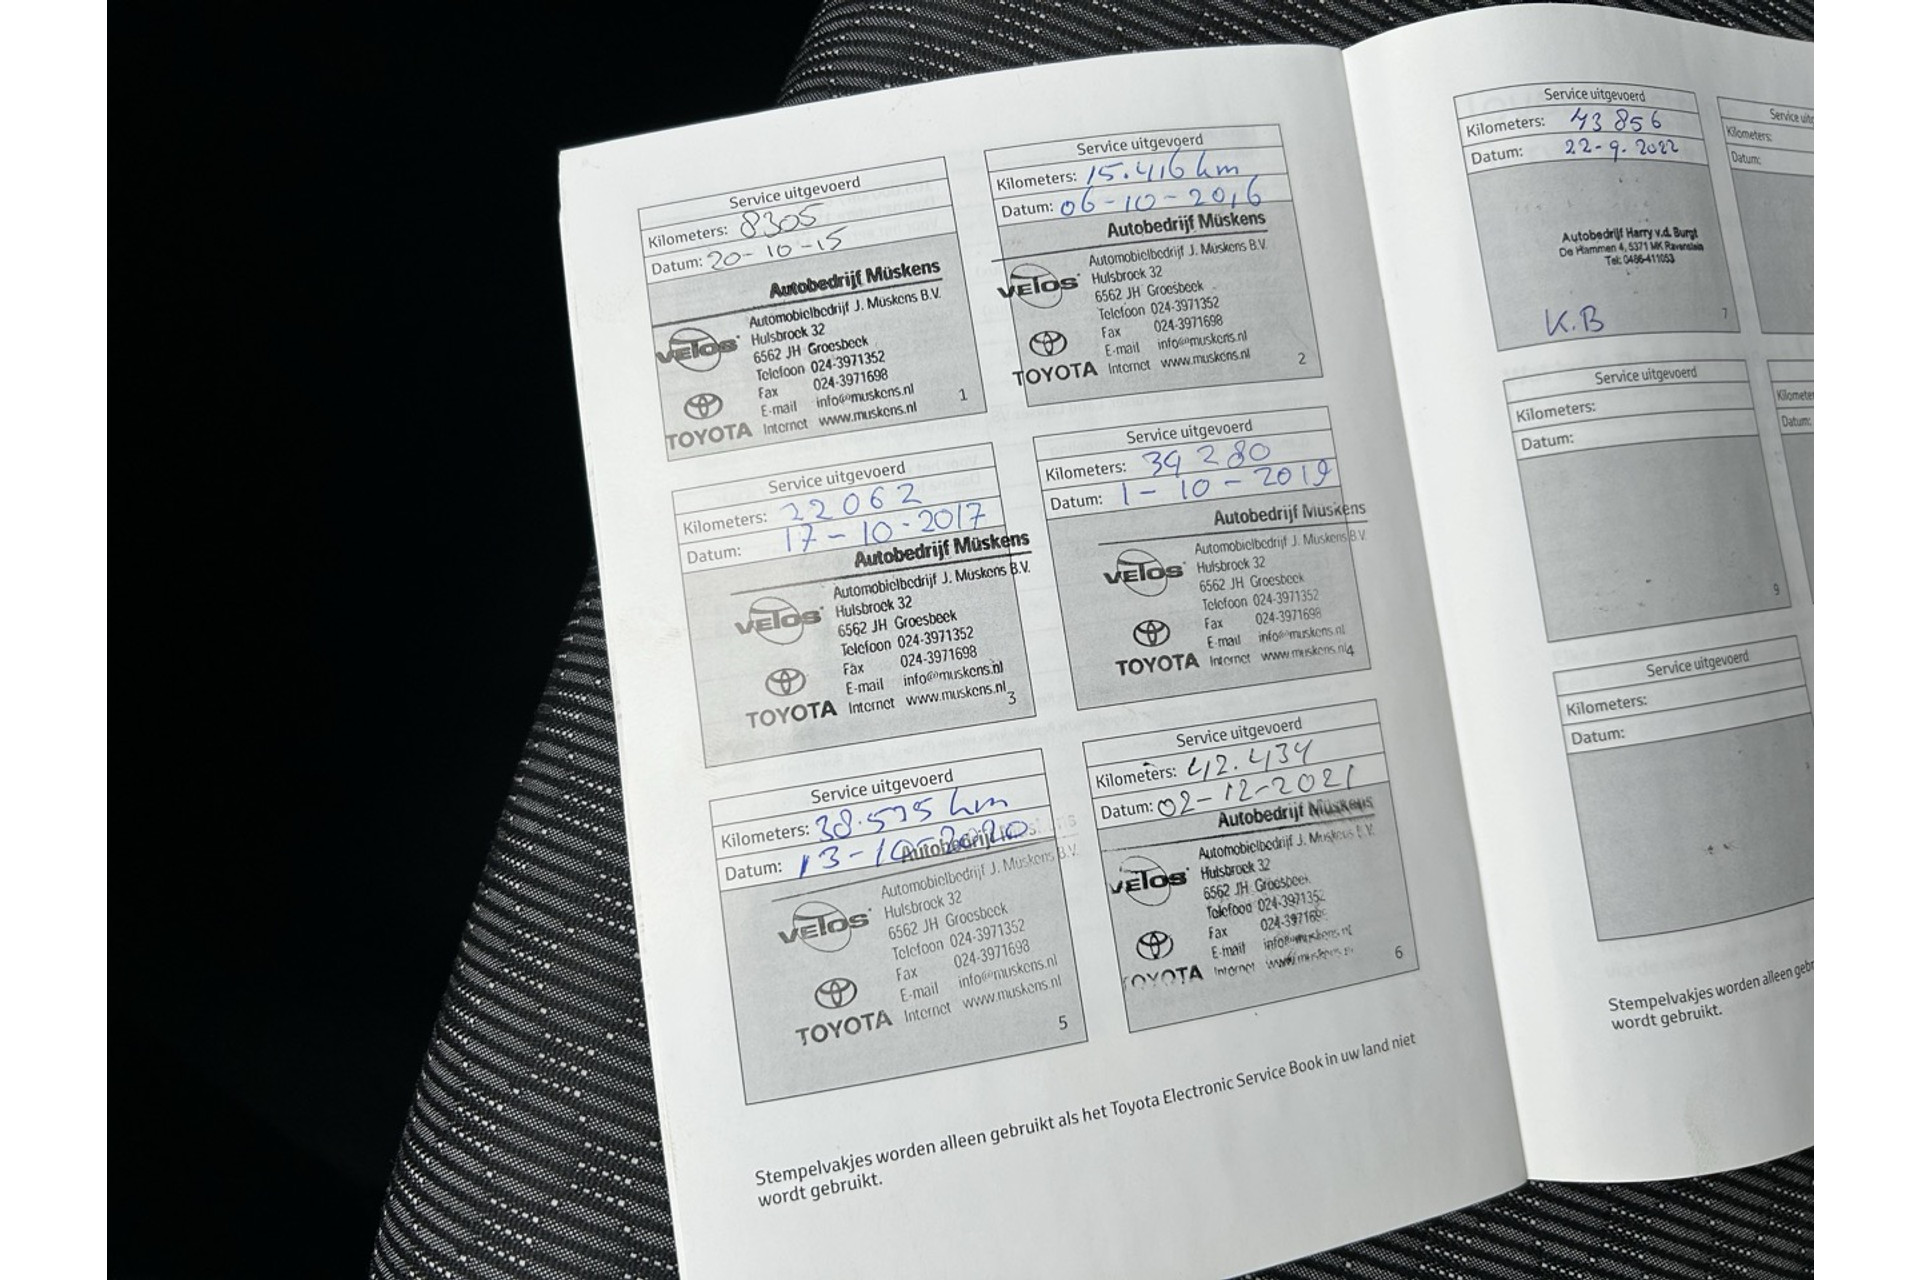 Service uitgevoerd
Kilometers: 8305
Datum: 20-10-15
Autobedrijf Müskens
Automobielbedrijf J. Müskens B.V.
Hulsbroek 32
VELOS
6562 JH Groesbeek
Telefoon 024-3971352
Fax 024-3971698
E-mail info@muskens.nl
TOYOTA Internet www.muskens.nl
1
Service uitgevoerd
Kilometers: 15.416 km
Datum: 06-10-2016
Autobedrijf Müskens
Automobielbedrijf J. Müskens B.V.
Hulsbroek 32
VELOS
6562 JH Groesbeek
Telefoon 024-3971352
Fax 024-3971698
E-mail info@muskens.nl
TOYOTA Internet www.muskens.nl
2
Service uitgevoerd
Kilometers: 22062
Datum: 17-10-2017
Autobedrijf Müskens
Automobielbedrijf J. Müskens B.V.
Hulsbroek 32
VELOS
6562 JH Groesbeek
Telefoon 024-3971352
Fax 024-3971698
E-mail info@muskens.nl
TOYOTA Internet www.muskens.nl
3
Service uitgevoerd
Kilometers: 34280
Datum: 1-10-2019
Autobedrijf Müskens
Automobielbedrijf J. Müskens B.V.
Hulsbroek 32
VELOS
6562 JH Groesbeek
Telefoon 024-3971352
Fax 024-3971698
E-mail info@muskens.nl
TOYOTA Internet www.muskens.nl
4
Service uitgevoerd
Kilometers: 38.575 km
Datum: 13-10-2020
Autobedrijf
Automobielbedrijf J. Müskens B.V.
Hulsbroek 32
VELOS
6562 JH Groesbeek
Telefoon 024-3971352
Fax 024-3971698
E-mail info@muskens.nl
TOYOTA Internet www.muskens.nl
5
Service uitgevoerd
Kilometers: 42.434
Datum: 02-12-2021
Autobedrijf Müskens
Automobielbedrijf J. Müskens B.V.
Hulsbroek 32
VELOS
6562 JH Groesbeek
Telefoon 024-3971352
Fax
E-mail info@muskens.nl
TOYOTA Internet www.muskens.nl
6
Stempelvakjes worden alleen gebruikt als het Toyota Electronic Service Book in uw land niet
wordt gebruikt.
Service uitgevoerd
Kilometers: 43856
Datum: 22-9-2022
Autobedrijf Harry v.d. Burgt
De Hammen 4, 5371 MK Ravenstein
Tel: 0486-411053
K.B
7
Service uitg
Kilometers:
Datum:
Service uitgevoerd
Kilometers:
Datum:
9
Kilomete
Datum:
Service uitgevoerd
Kilometers:
Datum:
Stempelvakjes worden alleen gebr
wordt gebruikt.